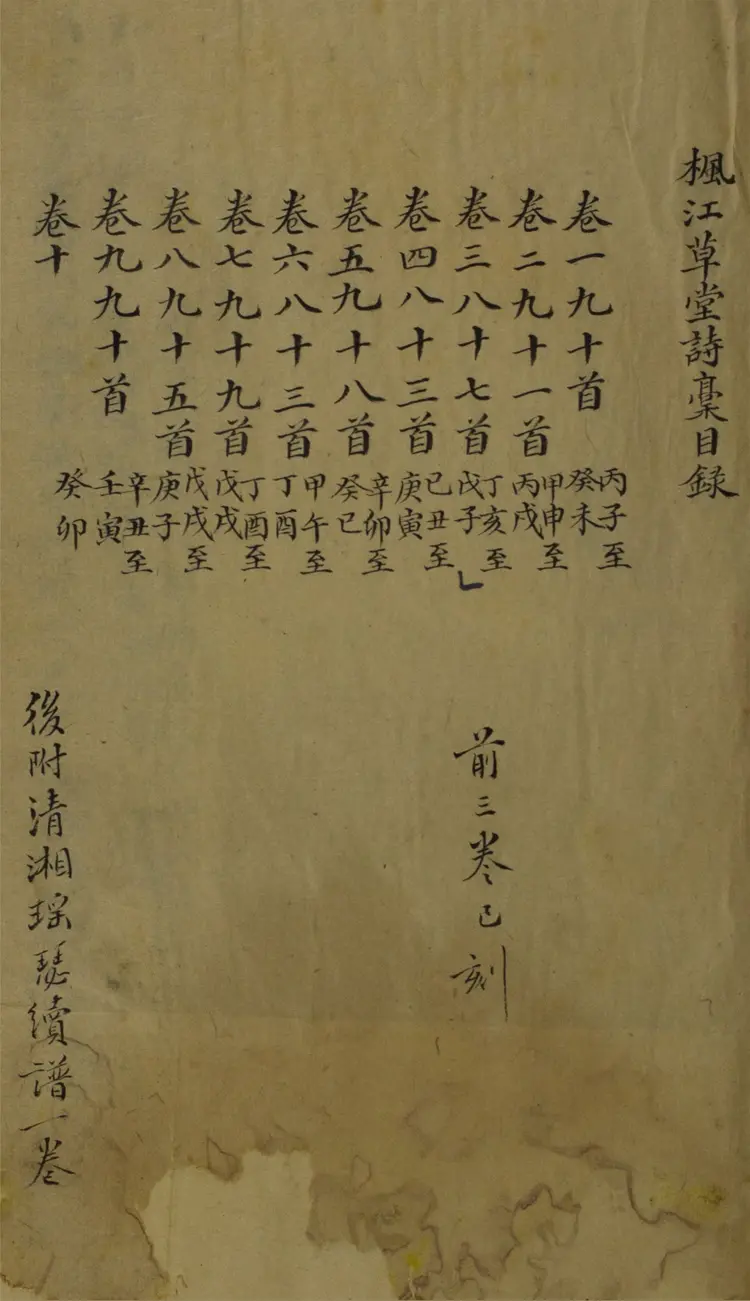 楓江草堂詩稾目録
卷一九十首 丙子至癸未
卷二九十一首 甲申至丙戌
卷三八十七首 丁亥至戊子
卷四八十三首 己丑至庚寅
卷五九十八首 辛卯至癸巳
卷六八十三首 甲午至丁酉
卷七九十九首 丁酉至戊戌
卷八九十五首 戊戌至庚子
卷九九十首 辛丑至壬寅
卷十 癸卯
前三卷已刻
後附清湘瑶瑟續譜一卷